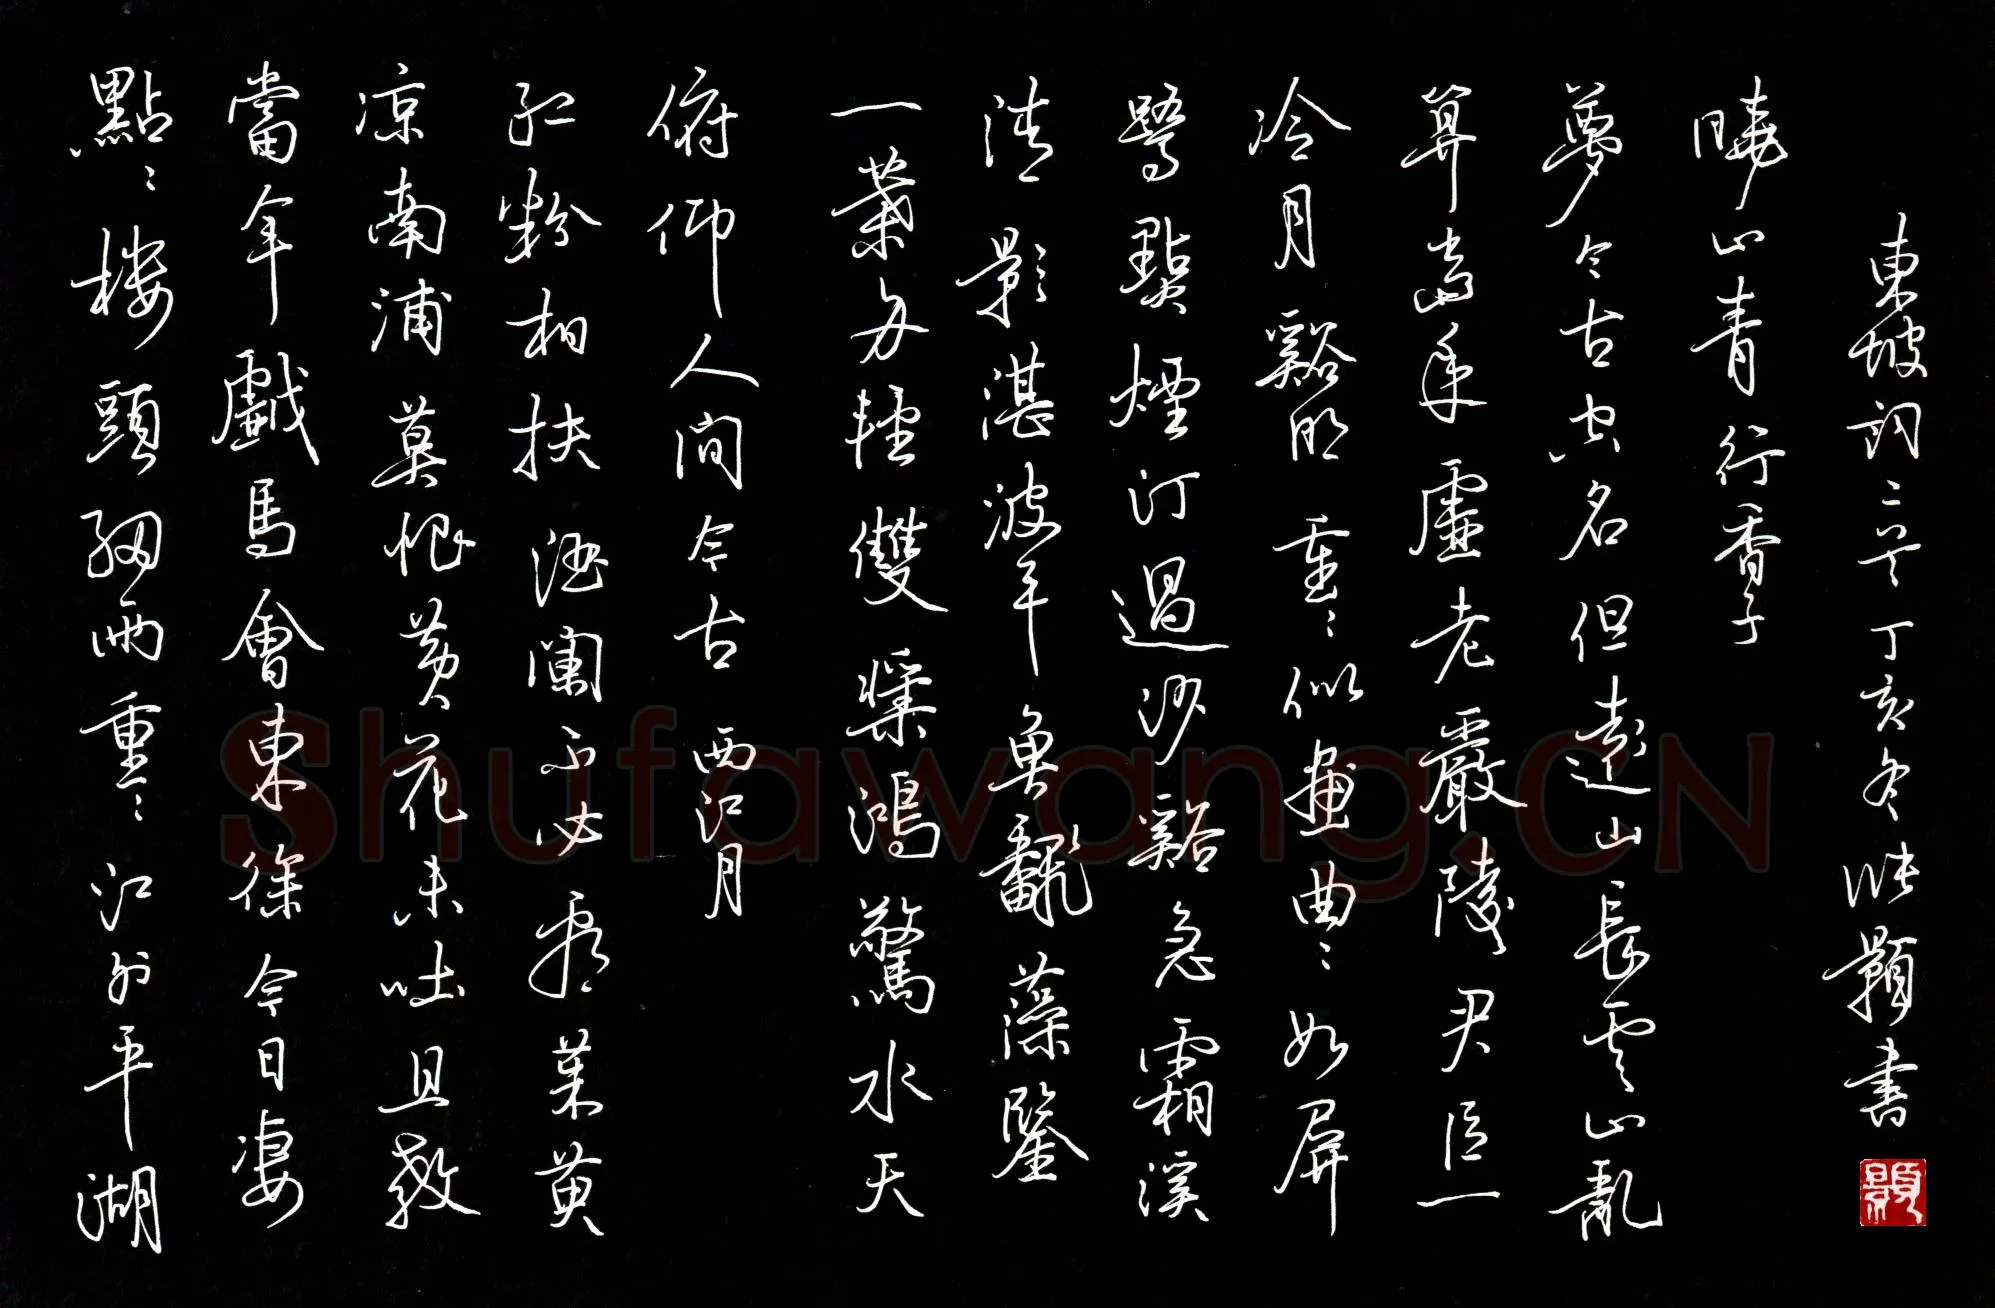 點點樓頭細雨重重江外平湖
當年戲馬會東徐今日淒
涼南浦莫恨黃花未吐且教
紅粉相扶酒闌不必看茱萸
俯仰人間今古 西江月
一葉舟輕雙槳鴻驚水天
清影湛波平魚翻藻鑒
鷺點煙汀過沙谿急霜溪
冷月谿明重重似畫曲曲如屏
算當年虛老嚴陵君臣一
夢今古空名但遠山長雲山亂
曉山青 行香子
東坡詞二首丁亥冬張顥書
Shufawang.CN